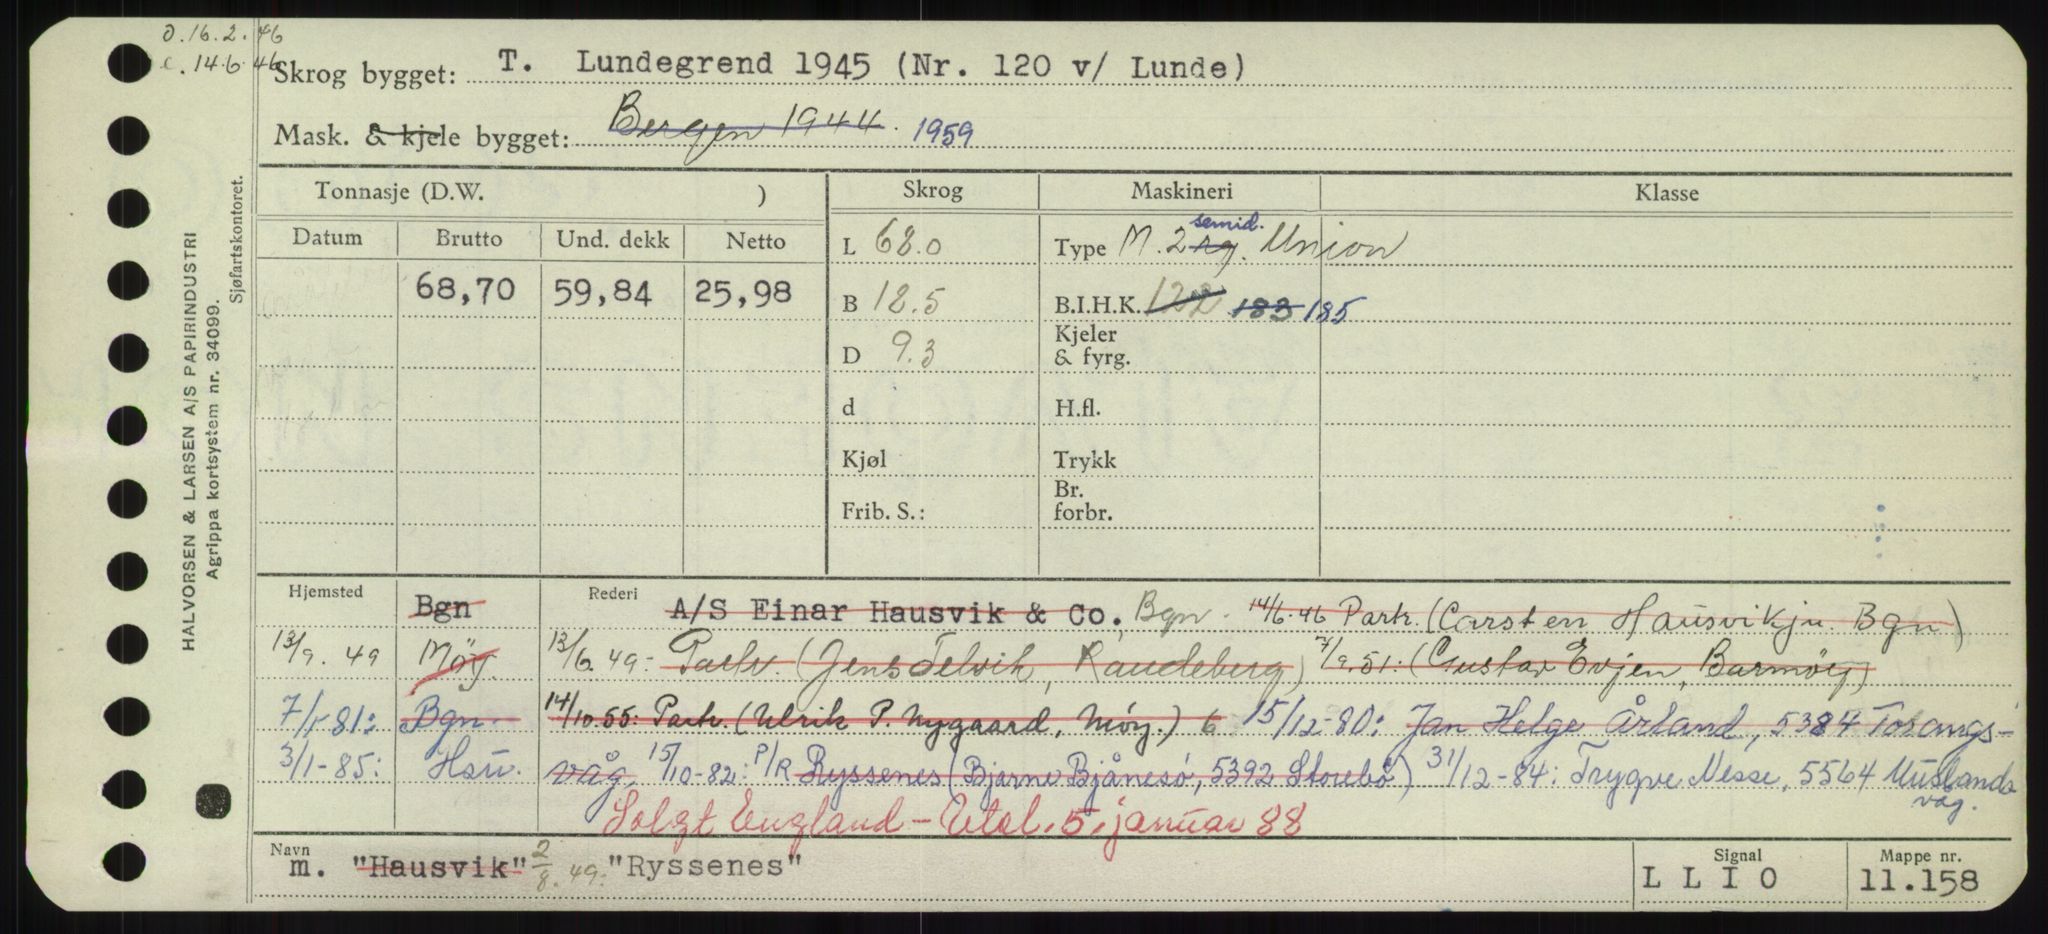 d. 16.2.46
e. 14.6.46
Skrog bygget: T. Lundegrend 1945 (Nr. 120 v/ Lunde)
Mask. & kjele bygget: Bergen 1944. 1959
Tonnasje (D.W. ) Skrog Maskineri Klasse
Datum Brutto Und. dekk Netto
68,70 59,84 25,98
L 68.0
B 18.5
D 9.3
d
Kjøl
Frib. S.:
semid.
Type M. 2 rg. Union
B.I.H.K. 122 183 185
Kjeler
& fyrg.
H.fl.
Trykk
Br.
forbr.
Hjemsted Bgn Rederi A/S Einar Hausvik & Co, Bgn. 14/6.46 Partr. (Carsten Hausvik jn. Bgn)
13/9.49 Møy. 13/6.49: Partr. (Jens Telvik, Raudeberg) 7/9.51: (Gustav Evjen, Barmøy)
7/1-81: Bgn. 14/10.55: Partr. (Ulrik P. Nygaard, Møy.) 6 15/12-80: Jan Helge Årland, 5384 Torangs-
3/1-85: Hsu. våg, 15/10-82: P/R Ryssenes (Bjarne Bjånesø, 5392 Storebø) 31/12-84: Trygve Nesse, 5564 Utslands
våg.
Solgt England - Utsl. 5. januar 88
Navn m. "Hausvik" 2/8.49. "Ryssenes"
Signal
L L I O
Mappe nr.
11.158
HALVORSEN & LARSEN A/S PAPIRINDUSTRI
Agrippa kortsystem nr. 34099.
Sjøfartskontoret.